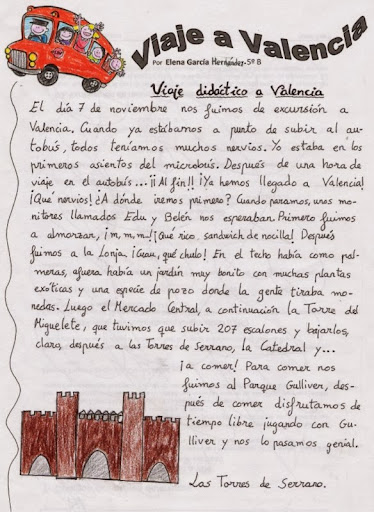 Viaje a Valencia
Por Elena García Hernández-5º B
Viaje didáctico a Valencia
El día 7 de noviembre nos fuimos de excursión a
Valencia. Cuando ya estábamos a punto de subir al au-
tobús, todos teníamos muchos nervios. Yo estaba en los
primeros asientos del microbús. Después de una hora de
viaje en el autobús...¡¡Al fin!! ¡Ya hemos llegado a Valencia!
¡Qué nervios! ¿A dónde iremos primero? Cuando paramos, unos mo-
nitores llamados Edu y Belén nos esperaban. Primero fuimos
a almorzar, ¡m,m,m! ¡Qué rico sandwich de nocilla! Después
fuimos a la Lonja. ¡Guau, qué chulo! En el techo había como pal-
meras, afuera había un jardín muy bonito con muchas plantas
exóticas y una especie de pozo donde la gente tiraba mo-
nedas. Luego el Mercado Central, a continuación la Torre del
Miguelete, que tuvimos que subir 207 escalones y bajarlos,
claro, después a las Torres de Serrano, la Catedral y...
¡a comer! Para comer nos
fuimos al Parque Galliver, des-
pués de comer disfrutamos de
tiempo libre jugando con Gu-
lliver y nos lo pasamos genial.
Las Torres de Serrano.